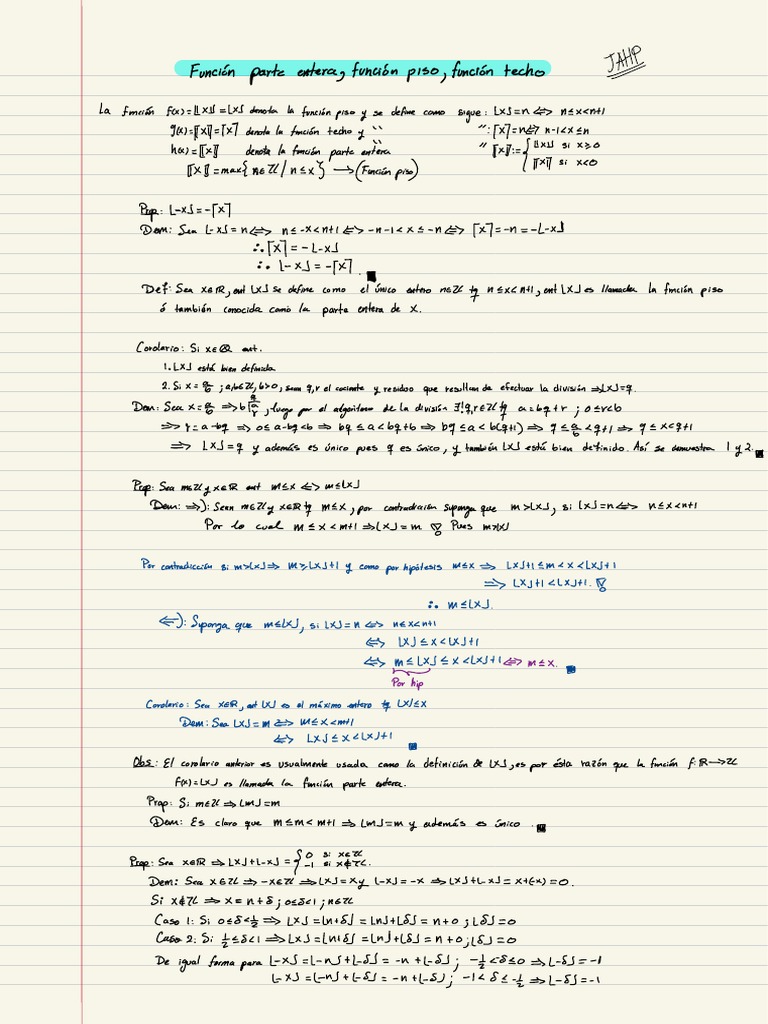 Función parte entera, función piso, función techo
JAHP
La función f(x)=⟦x⟧=⌊x⌋ denota la función piso y se define como sigue: ⌊x⌋=n ⟺ n≤x<n+1
g(x)=⟦x⟧=⌈x⌉ denota la función techo y " ": ⌈x⌉=n ⟺ n-1<x≤n
h(x)=⟦x⟧ denota la función parte entera " ⟦x⟧:={ ⌊x⌋ si x≥0
⌈x⌉ si x<0
⟦x⟧=max{n∈ℤ/n≤x} ⟶(Función piso)
Prop: ⌊-x⌋=-⌈x⌉
Dem: Sea ⌊-x⌋=n ⟺ n≤-x<n+1 ⟺ -n-1<x≤-n ⟺ ⌈x⌉=-n=-⌊-x⌋
∴ ⌈x⌉=-⌊-x⌋
∴ ⌊-x⌋=-⌈x⌉. ■
Def: Sea x∈ℝ, ent ⌊x⌋ se define como el único entero n∈ℤ tq n≤x<n+1, ent ⌊x⌋ es llamada la función piso
ó también conocida como la parte entera de x.
Corolario: Si x∈ℚ ent.
1. ⌊x⌋ está bien definida
2. Si x=a/b; a,b∈ℤ, b>0, sean q,r el cociente y residuo que resultan de efectuar la división ⟹ ⌊x⌋=q.
Dem: Sea x=a/b ⟹ b⟌a, luego por el algoritmo de la división ∃!q,r∈ℤ tq a=bq+r; 0≤r<b
⟹ r=a-bq ⟹ 0≤a-bq<b ⟹ bq≤a<bq+b ⟹ bq≤a<b(q+1) ⟹ q≤a/b<q+1 ⟹ q≤x<q+1
⟹ ⌊x⌋=q y además es único pues q es único, y también ⌊x⌋ está bien definido. Así se demuestra 1 y 2. ■
Prop: Sea m∈ℤ y x∈ℝ ent m≤x ⟺ m≤⌊x⌋
Dem: ⟹): Sean m∈ℤ y x∈ℝ tq m≤x, por contradicción suponga que m>⌊x⌋, si ⌊x⌋=n ⟺ n≤x<n+1
Por lo cual m≤x<m+1 ⟹ ⌊x⌋=m Pues m>⌊x⌋
Por contradicción si m>⌊x⌋ ⟹ m≥⌊x⌋+1 y como por hipótesis m≤x ⟹ ⌊x⌋+1≤m<x<⌊x⌋+1
⟹ ⌊x⌋+1<⌊x⌋+1.
∴ m≤⌊x⌋.
⟸): Suponga que m≤⌊x⌋, si ⌊x⌋=n ⟺ n≤x<n+1
⟺ ⌊x⌋≤x<⌊x⌋+1
⟺ m≤⌊x⌋≤x<⌊x⌋+1 ⟺ m≤x. ■
Por hip
Corolario: Sea x∈ℝ, ent ⌊x⌋ es el máximo entero tq ⌊x⌋≤x
Dem: Sea ⌊x⌋=m ⟺ m≤x<m+1
⟺ ⌊x⌋≤x<⌊x⌋+1 ■
Obs: El corolario anterior es usualmente usada como la definición de ⌊x⌋, es por ésta razón que la función f:ℝ⟶ℤ
f(x)=⌊x⌋ es llamada la función parte entera.
Prop: Si m∈ℤ ⟹ ⌊m⌋=m
Dem: Es claro que m≤m<m+1 ⟹ ⌊m⌋=m y además es único. ■
Prop: Sea x∈ℝ ⟹ ⌊x⌋+⌊-x⌋={ 0 si x∈ℤ
-1 si x∉ℤ.
Dem: Sea x∈ℤ ⟹ -x∈ℤ ⟹ ⌊x⌋=x y ⌊-x⌋=-x ⟹ ⌊x⌋+⌊-x⌋=x+(-x)=0.
Si x∉ℤ ⟹ x=n+δ; 0≤δ<1; n∈ℤ
Caso 1: Si 0≤δ<1/2 ⟹ ⌊x⌋=⌊n+δ⌋=⌊n⌋+⌊δ⌋=n+0; ⌊δ⌋=0
Caso 2: Si 1/2≤δ<1 ⟹ ⌊x⌋=⌊n+δ⌋=⌊n⌋+⌊δ⌋=n+0; ⌊δ⌋=0
De igual forma para ⌊-x⌋=⌊-n⌋+⌊-δ⌋=-n+⌊-δ⌋; -1/2<δ≤0 ⟹ ⌊-δ⌋=-1
⌊-x⌋=⌊-n⌋+⌊-δ⌋=-n+⌊-δ⌋; -1<δ≤-1/2 ⟹ ⌊-δ⌋=-1